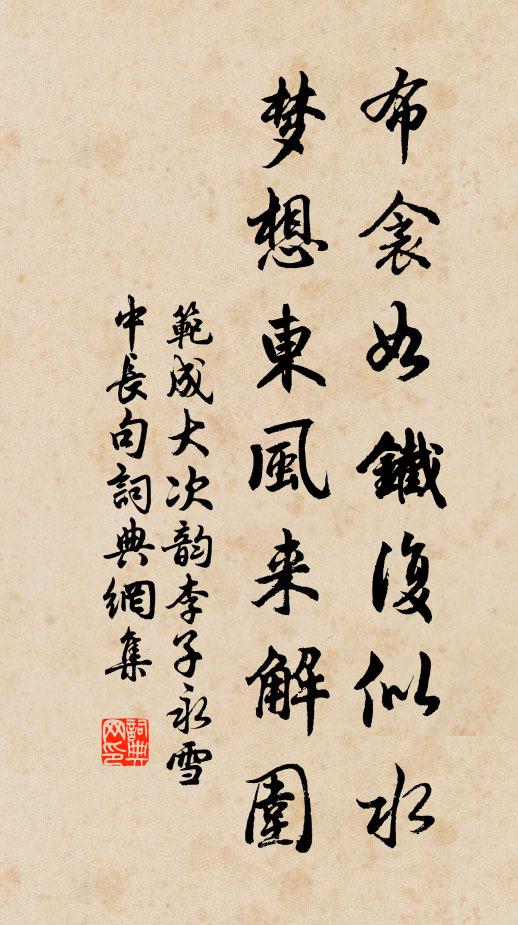 布衾如鐵復似水
梦想東風来解圍
範成大次韵李子永雪
中長句詞典網集
詞典
网印